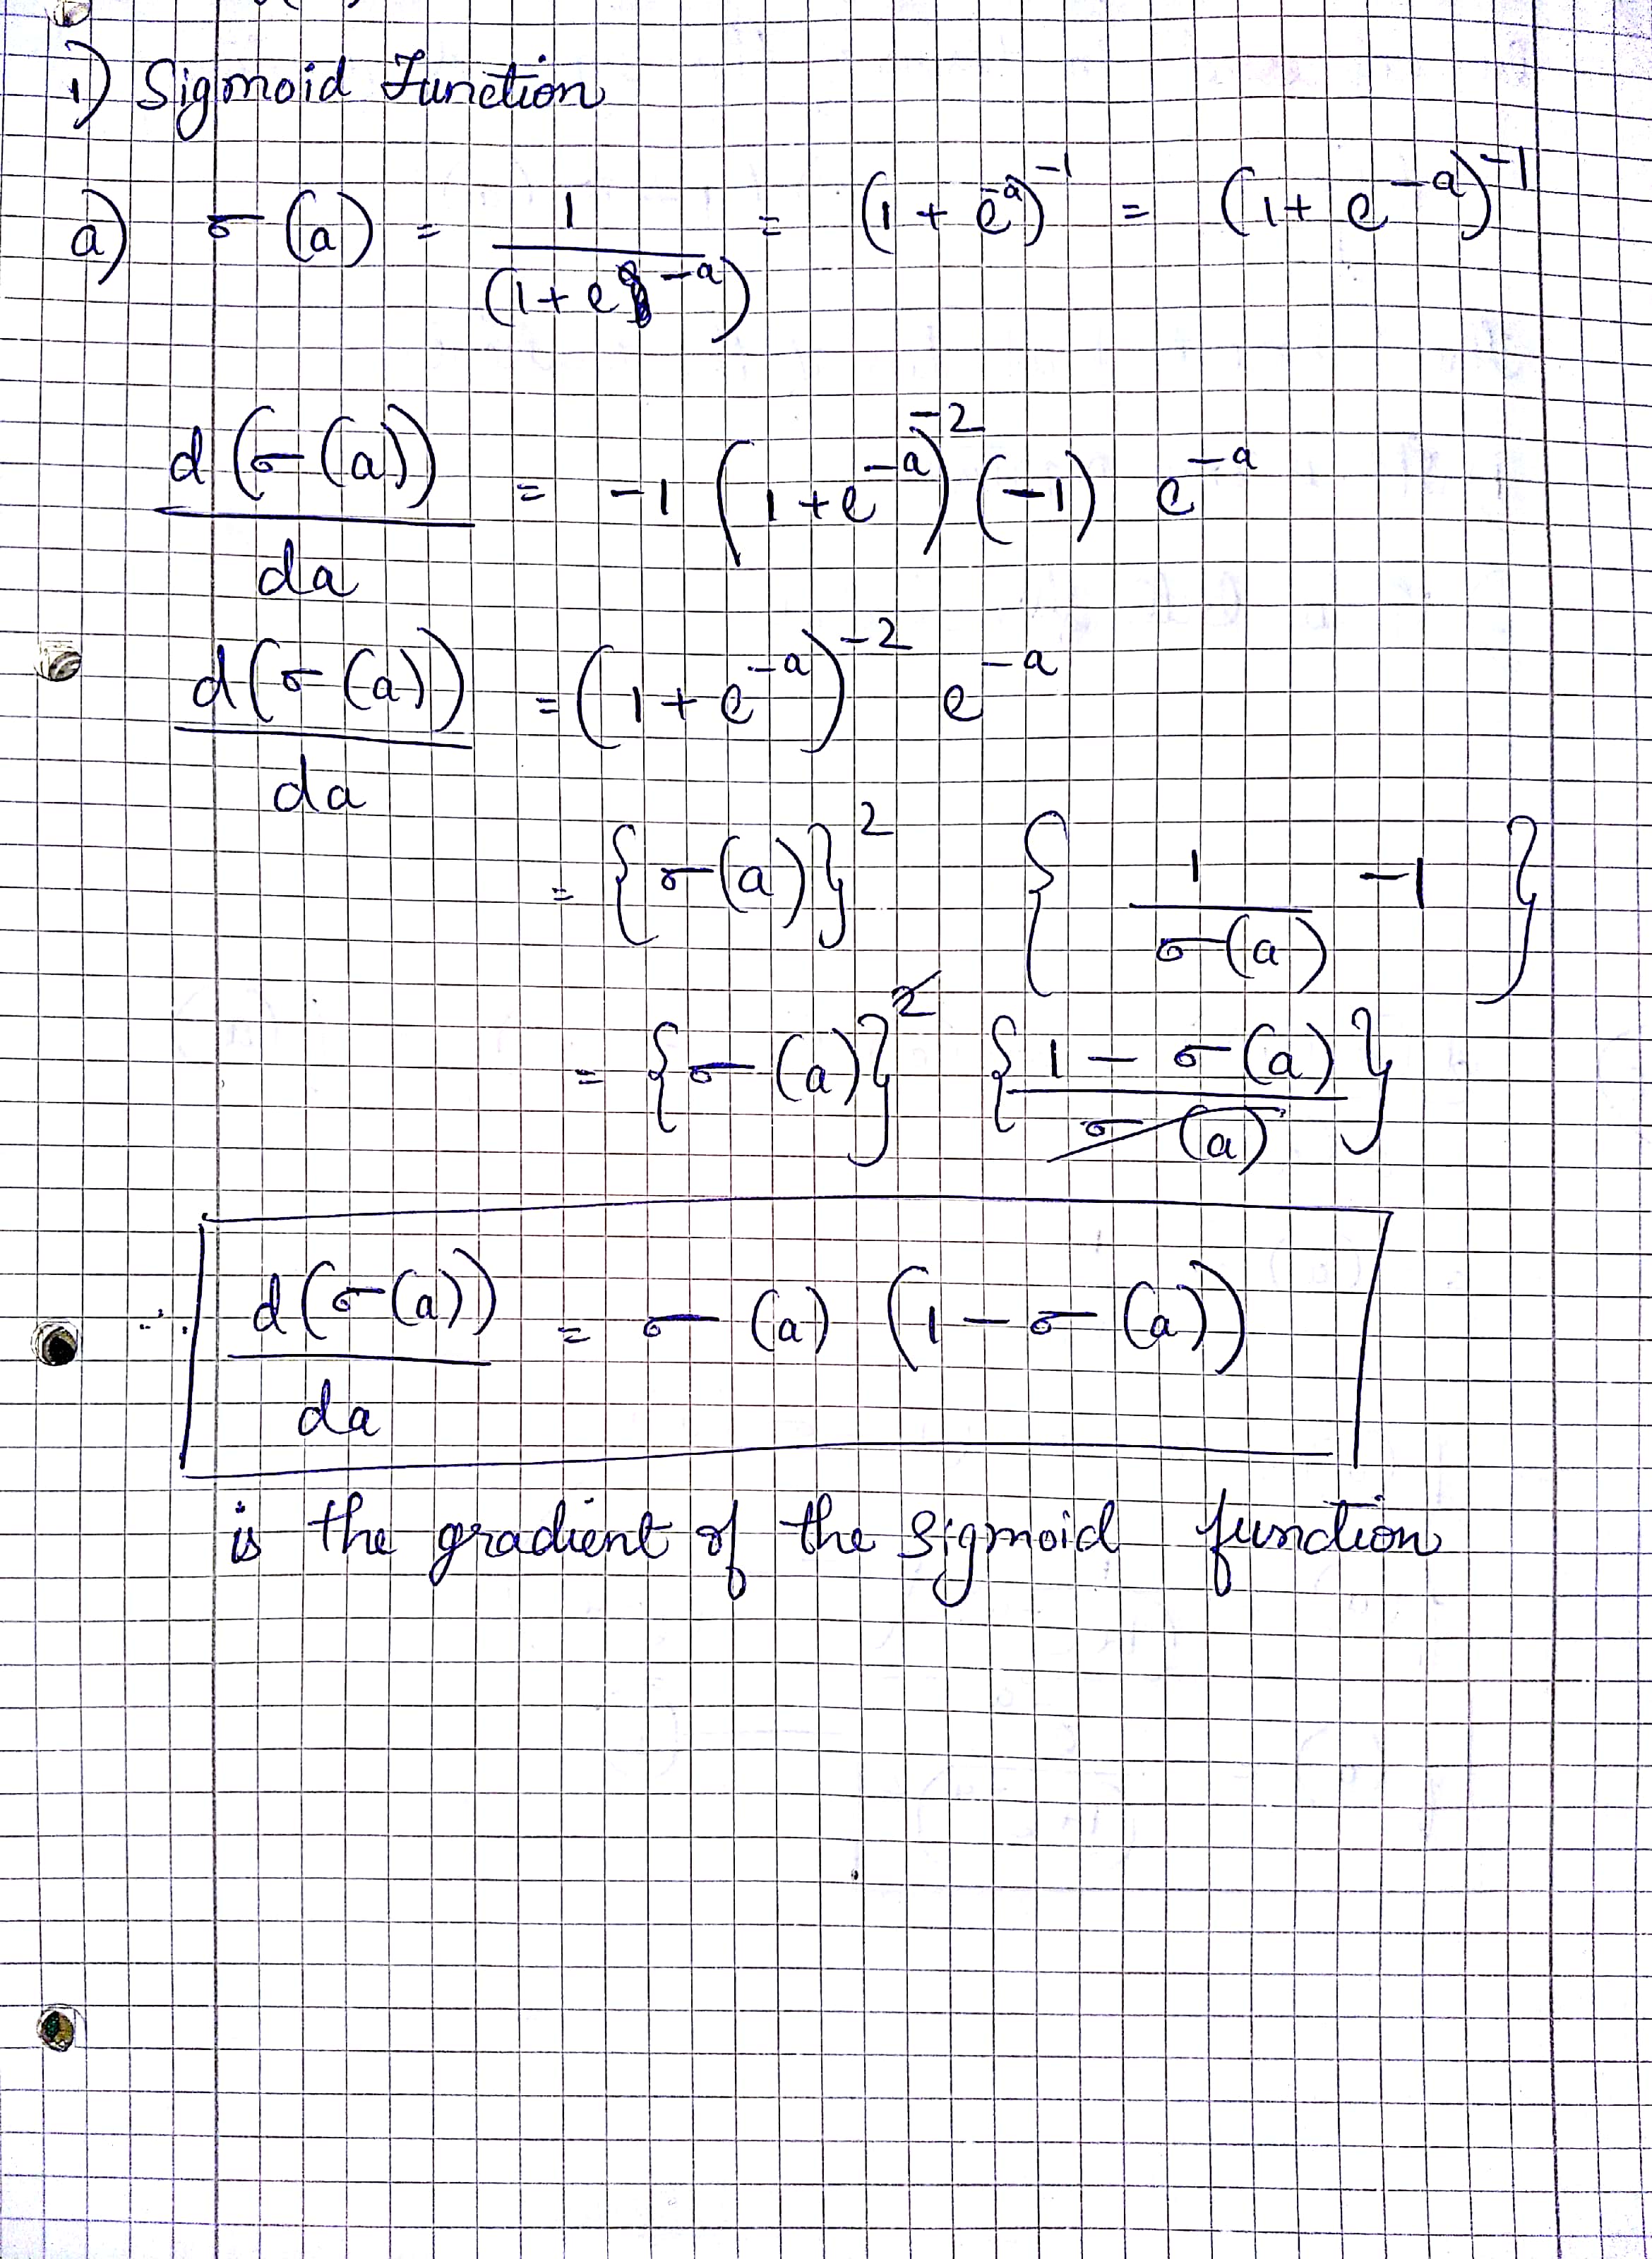 1) Sigmoid Function
a) σ(a) = 1/(1+e^-a) = (1+e^-a)^-1 = (1+e^-a)^-1
d(σ(a))/da = -1 (1+e^-a)^-2 (-1) e^-a
d(σ(a))/da = (1+e^-a)^-2 e^-a
= {σ(a)}^2 {1/σ(a) -1}
= {σ(a)}^2 {1-σ(a)/σ(a)}
∴ d(σ(a))/da = σ(a) (1-σ(a))
is the gradient of the sigmoid function